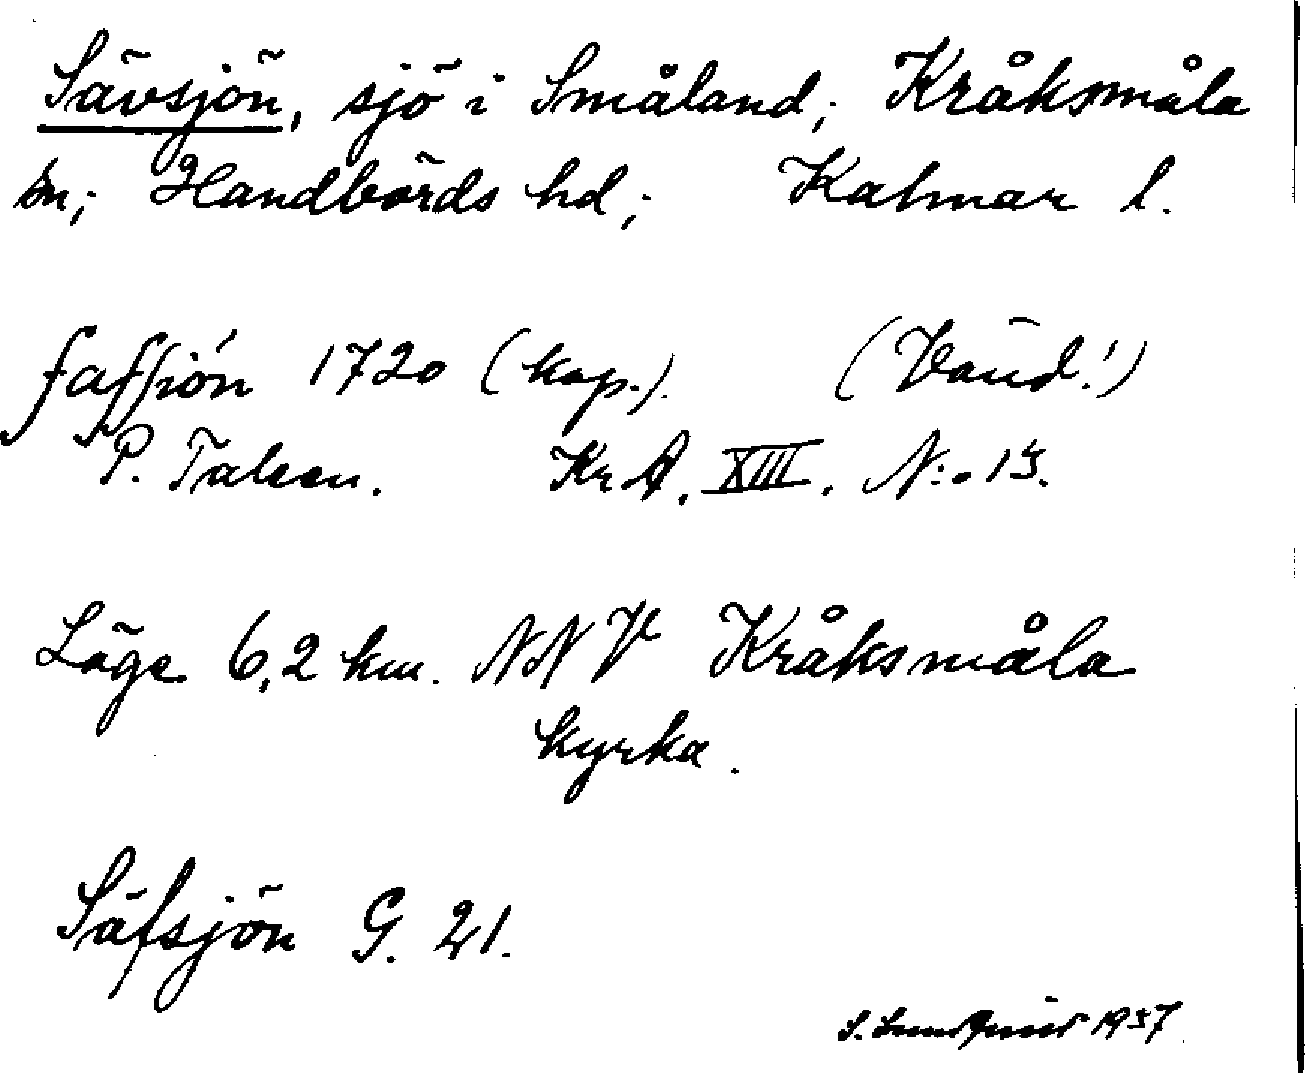 Sävsjön, sjö i Småland; Kråksmåla
sn; Handbörds hd; Kalmar l.
saffjön 1720 (kop.). (Vänd!)
P. Talsen. Kr A. XIII. N:o 13.
Läge 6,2 km. NNV Kråksmåla
kyrka.
Säfsjön G. 21.
S. 1937